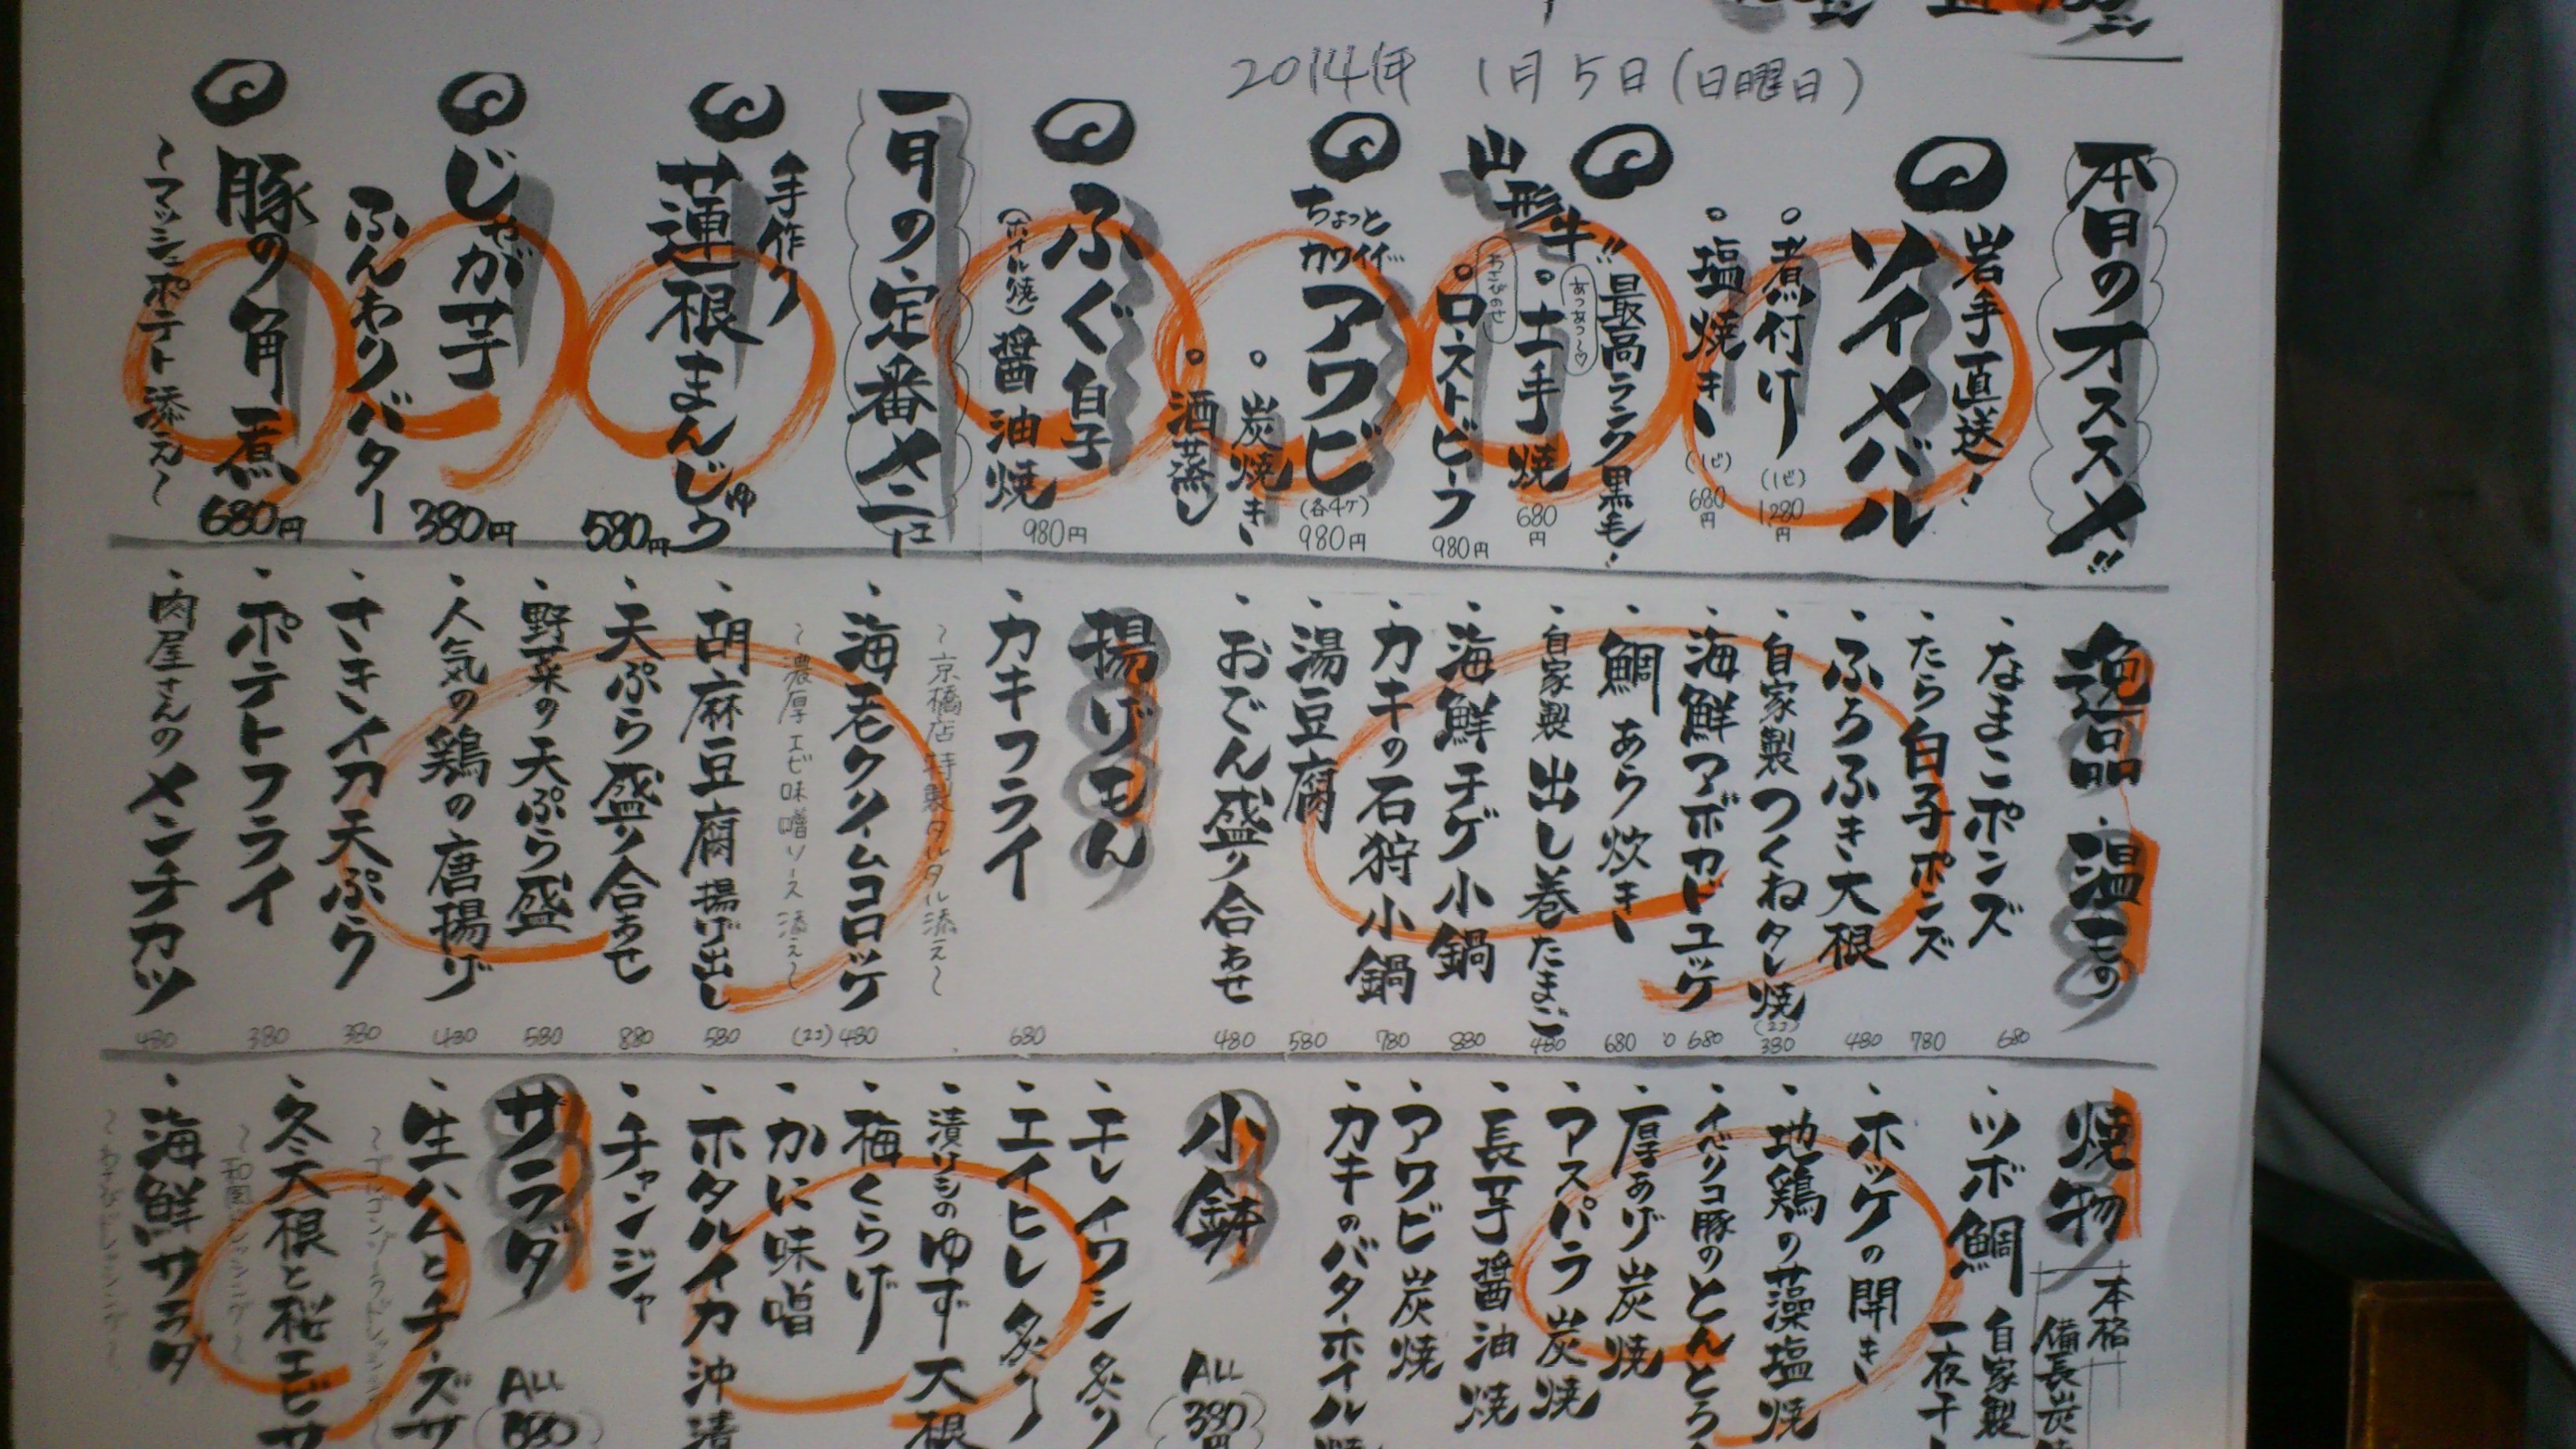 2014年 1月5日(日曜日)
本日のオススメ!!
岩手直送!
ソイメバル
。煮付け (1ピ) 1,280円
。塩焼き (1ピ) 680円
山形牛!!
最高ランク黒毛!
あつあつ〜♡
。土手焼 680円
わさびのせ
。ローストビーフ 980円
ちょっとカワイイ
アワビ (各4ケ) 980円
。炭焼き
。酒蒸し
ふぐ白子
(ホイル焼)醤油焼 980円
一月の定番メニュー
手作り
蓮根まんじゅう 580円
じゃが芋
ふんわりバター 380円
豚の角煮 680円
〜マッシュポテト添え〜
逸品・温もの
・なまこポンズ 680
・たら白子ポンズ 780
・ふろふき大根 480
・自家製つくねタレ焼 (2コ) 380
・海鮮アボカドユッケ 680
・鯛あら炊き 680
・自家製出し巻たまご 480
・海鮮チゲ小鍋 880
・カキの石狩小鍋 780
・湯豆腐 580
・おでん盛り合わせ 480
揚げもん
・カキフライ 680
〜京橋店特製タルタル添え〜
・海老クリームコロッケ (2コ) 480
〜濃厚エビ味噌ソース添え〜
・胡麻豆腐揚げ出し 580
・天ぷら盛り合わせ 880
・野菜の天ぷら盛 580
・人気の鶏の唐揚げ 480
・さきイカ天ぷら 380
・ポテトフライ 380
・肉屋さんのメンチカツ 480
焼物
本格
備長炭
・ツボ鯛 自家製一夜干し
・ホッケの開き
・地鶏の藻塩焼
・イベリコ豚のとんとろ
・厚あげ炭焼
・アスパラ炭焼
・長芋醤油焼
・アワビ炭焼
・カキのバターホイル焼
小鉢
ALL 380円
・干しイワシ炙り
・エイヒレ炙り
・漬けもののゆず大根
・梅くらげ
・かに味噌
・ホタルイカ沖漬
・チャンジャ
サラダ
ALL
・生ハムとチーズサ
・冬大根と桜エビサ
〜和風ドレッシング〜
・海鮮サラダ
〜わさびドレッシング〜